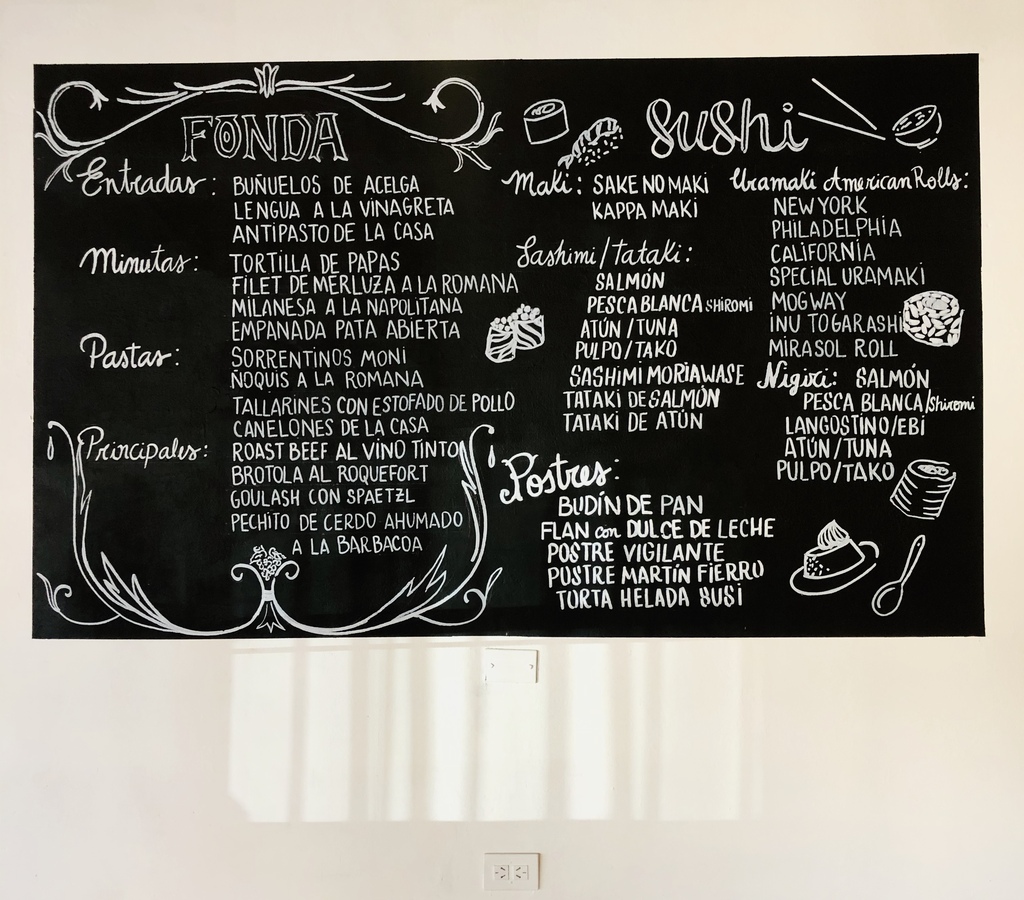 FONDA
Entradas: BUÑUELOS DE ACELGA
LENGUA A LA VINAGRETA
ANTIPASTO DE LA CASA
Minutas: TORTILLA DE PAPAS
FILET DE MERLUZA A LA ROMANA
MILANESA A LA NAPOLITANA
EMPANADA PATA ABIERTA
Pastas: SORRENTINOS MONI
ÑOQUIS A LA ROMANA
TALLARINES CON ESTOFADO DE POLLO
CANELONES DE LA CASA
Principales: ROAST BEEF AL VINO TINTO
BROTOLA AL ROQUEFORT
GOULASH CON SPAETZL
PECHITO DE CERDO AHUMADO
A LA BARBACOA
sushi
Maki: SAKE NO MAKI
KAPPA MAKI
Sashimi/tataki:
SALMÓN
PESCA BLANCA SHIROMI
ATÚN/TUNA
PULPO/TAKO
SASHIMI MORIAWASE
TATAKI DE SALMÓN
TATAKI DE ATÚN
Uramaki American Rolls:
NEW YORK
PHILADELPHIA
CALIFORNÍA
SPECIAL URAMAKI
MOGWAY
INU TOGARASHI
MIRASOL ROLL
Nigiri: SALMÓN
PESCA BLANCA/Shiromi
LANGOSTINO/EBI
ATÚN/TUNA
PULPO/TAKO
Postres:
BUDÍN DE PAN
FLAN con DULCE DE LECHE
POSTRE VIGILANTE
POSTRE MARTÍN FIERRO
TORTA HELADA SUSI